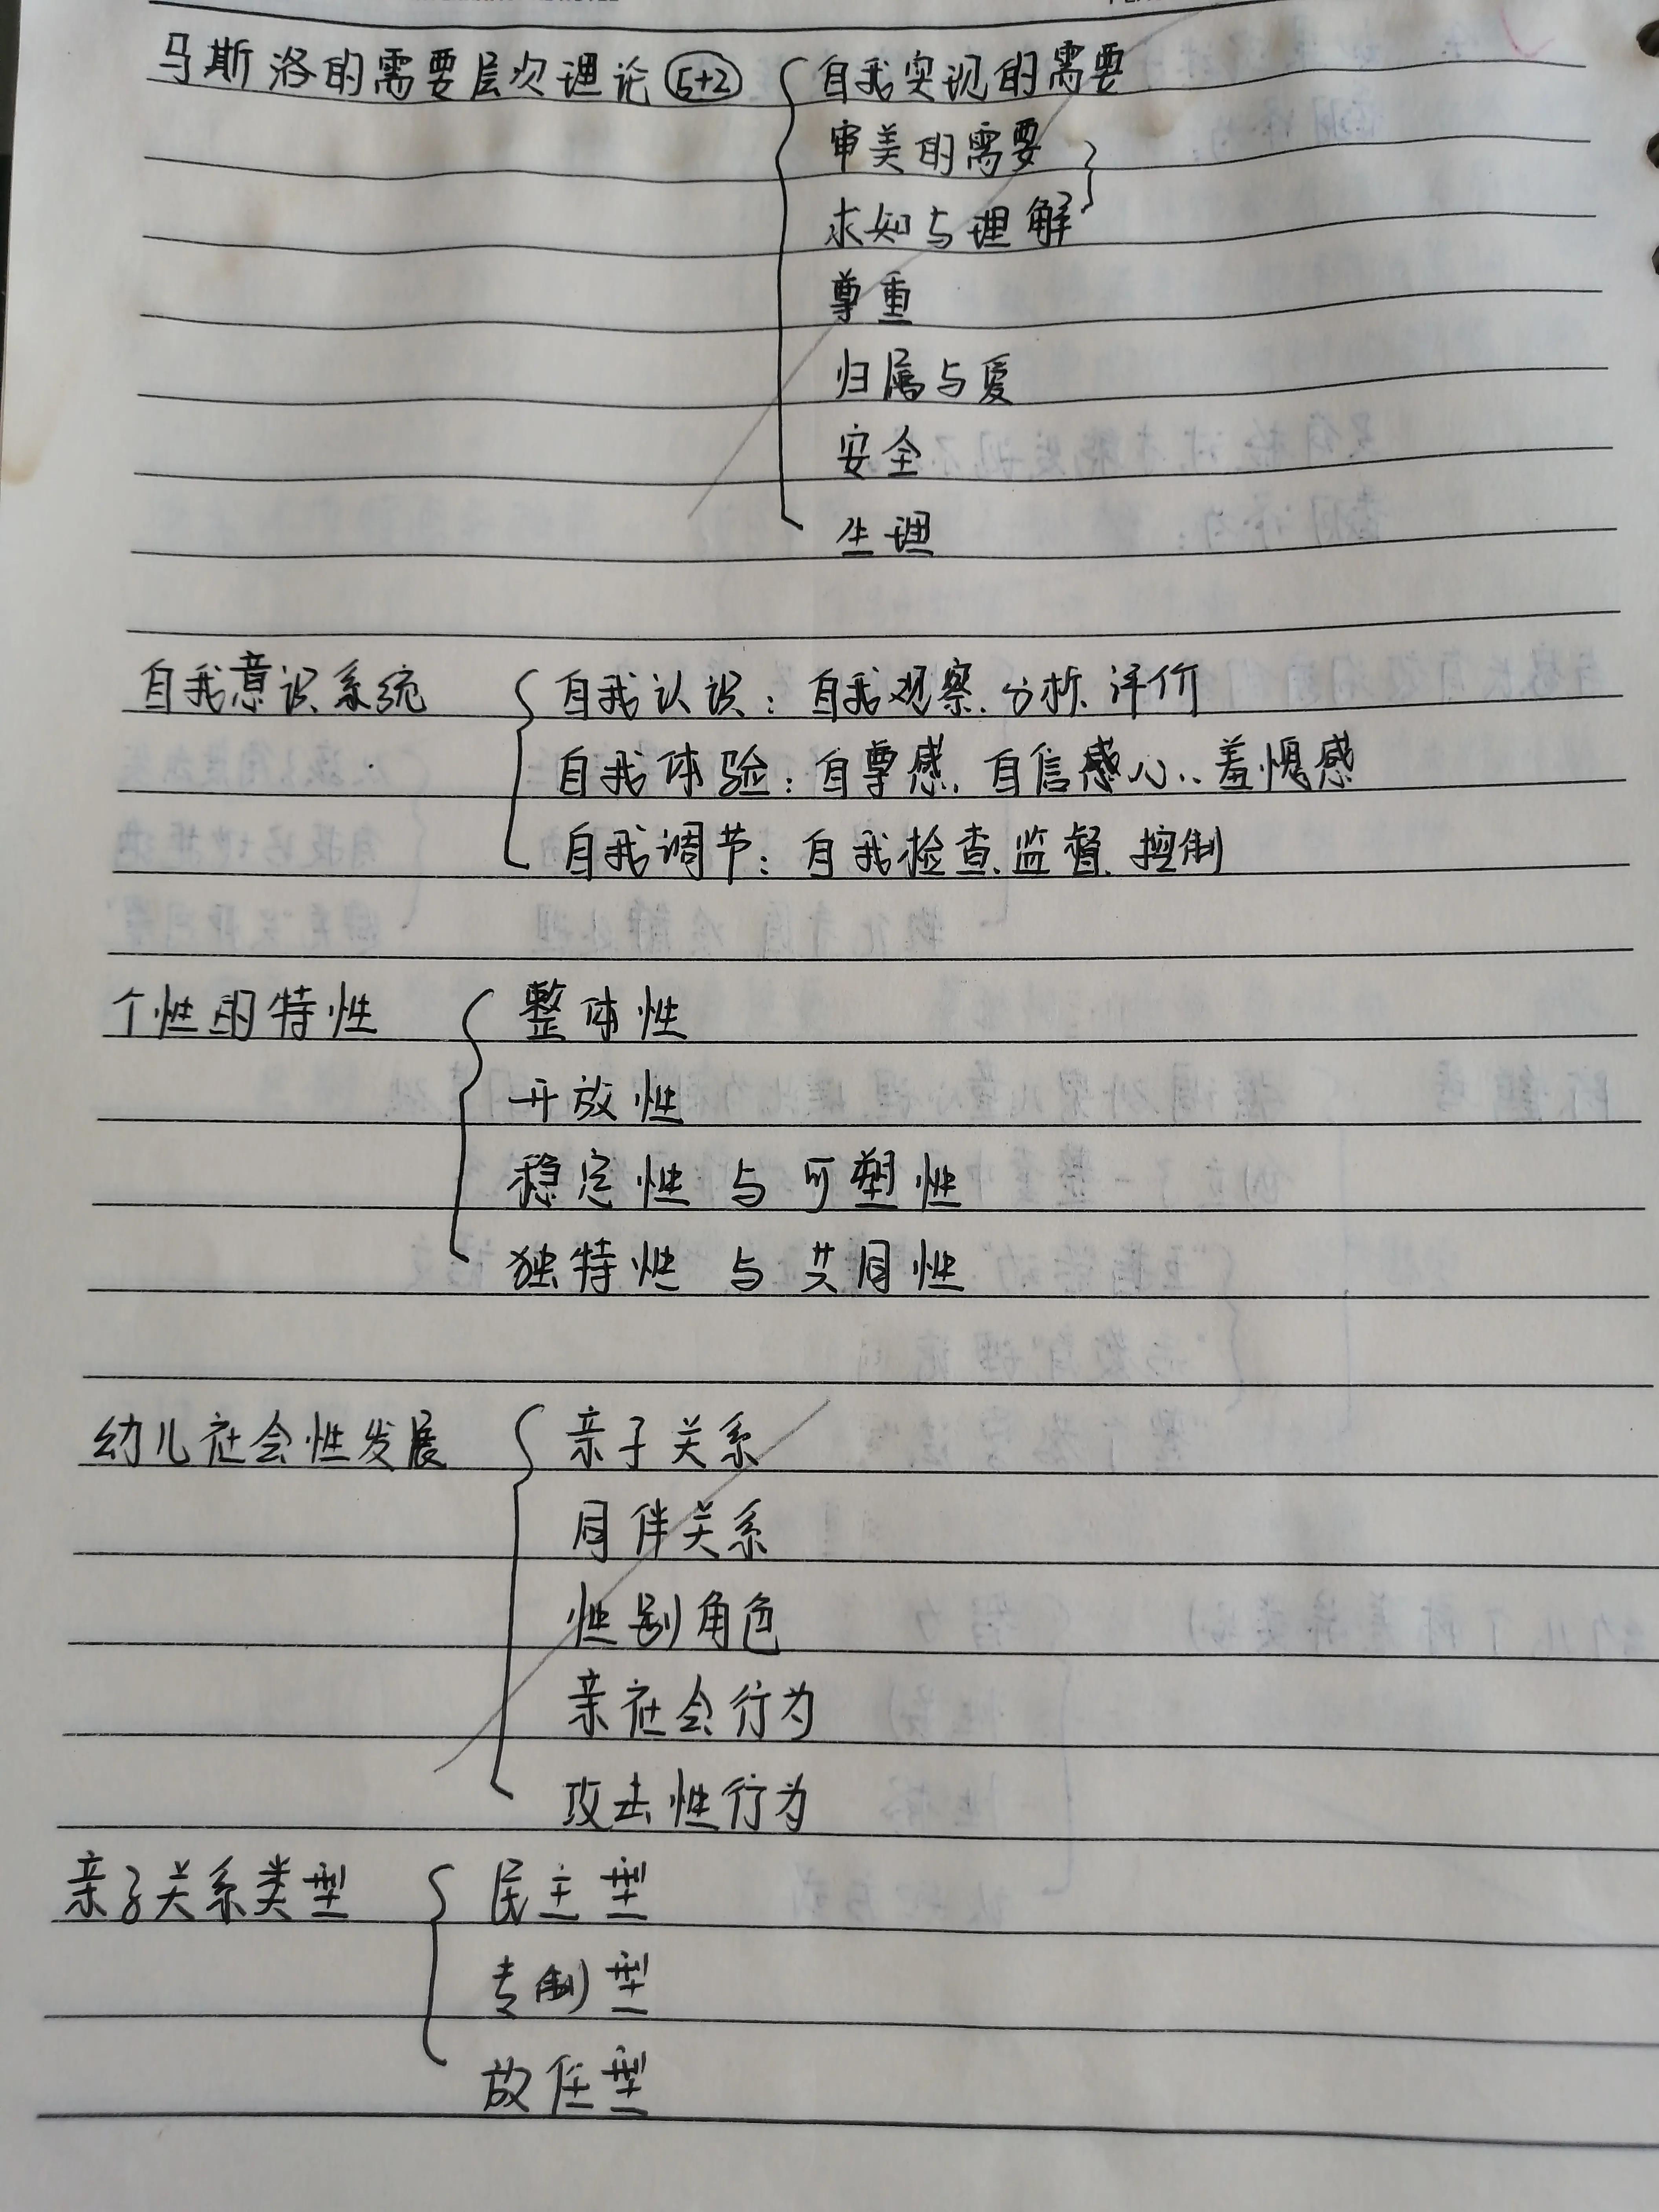 马斯洛的需要层次理论 5+2 { 自我实现的需要
审美的需要 }
求知与理解
尊重
归属与爱
安全
生理
自我意识系统 { 自我认识：自我观察、分析、评价
自我体验：自尊感、自信感心、羞愧感
自我调节：自我检查、监督、控制
个性的特性 { 整体性
开放性
稳定性与可塑性
独特性与共同性
幼儿社会性发展 { 亲子关系
同伴关系
性别角色
亲社会行为
攻击性行为
亲子关系类型 { 民主型
专制型
放任型